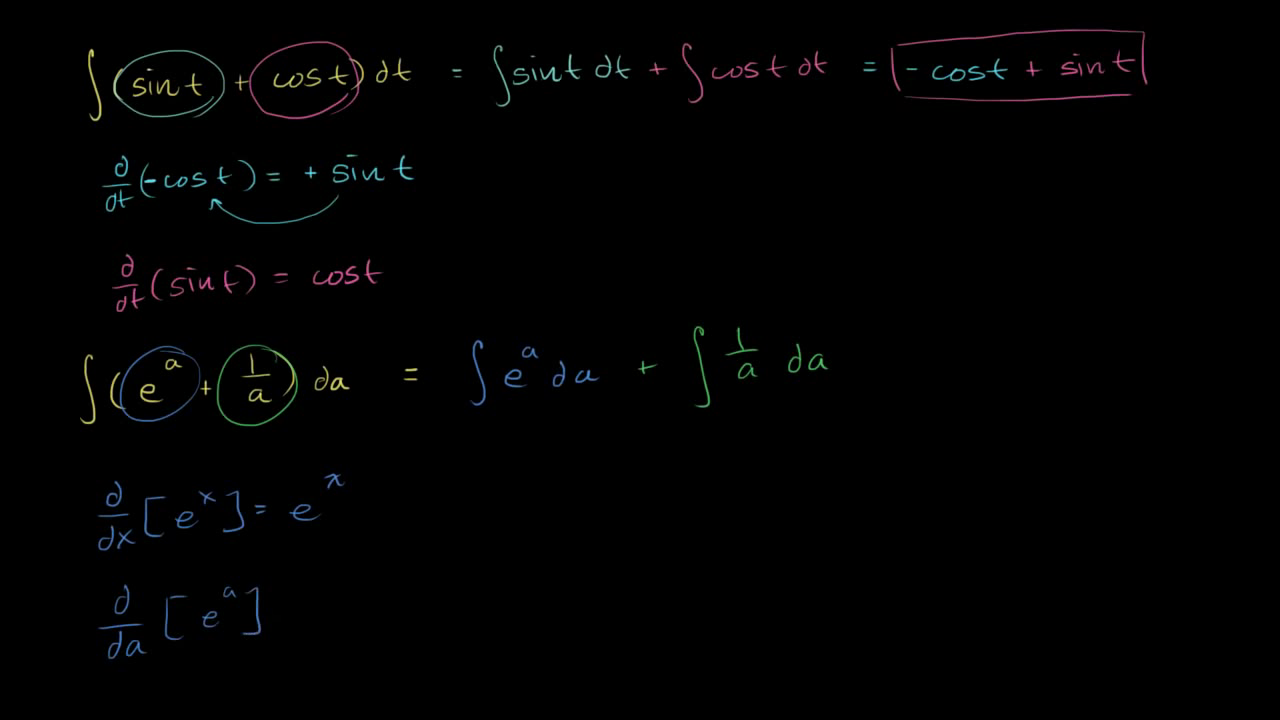 ∫(sin t + cos t) dt = ∫sin t dt + ∫cos t dt = - cos t + sin t
d/dt (-cos t) = + sin t
d/dt (sin t) = cos t
∫(e^a + 1/a) da = ∫e^a da + ∫1/a da
d/dx [e^x] = e^x
d/da [e^a]